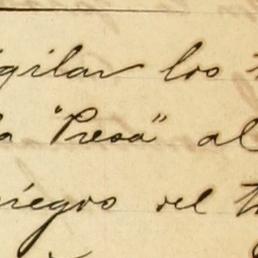 igilar los
la "Presa" al
riegos del